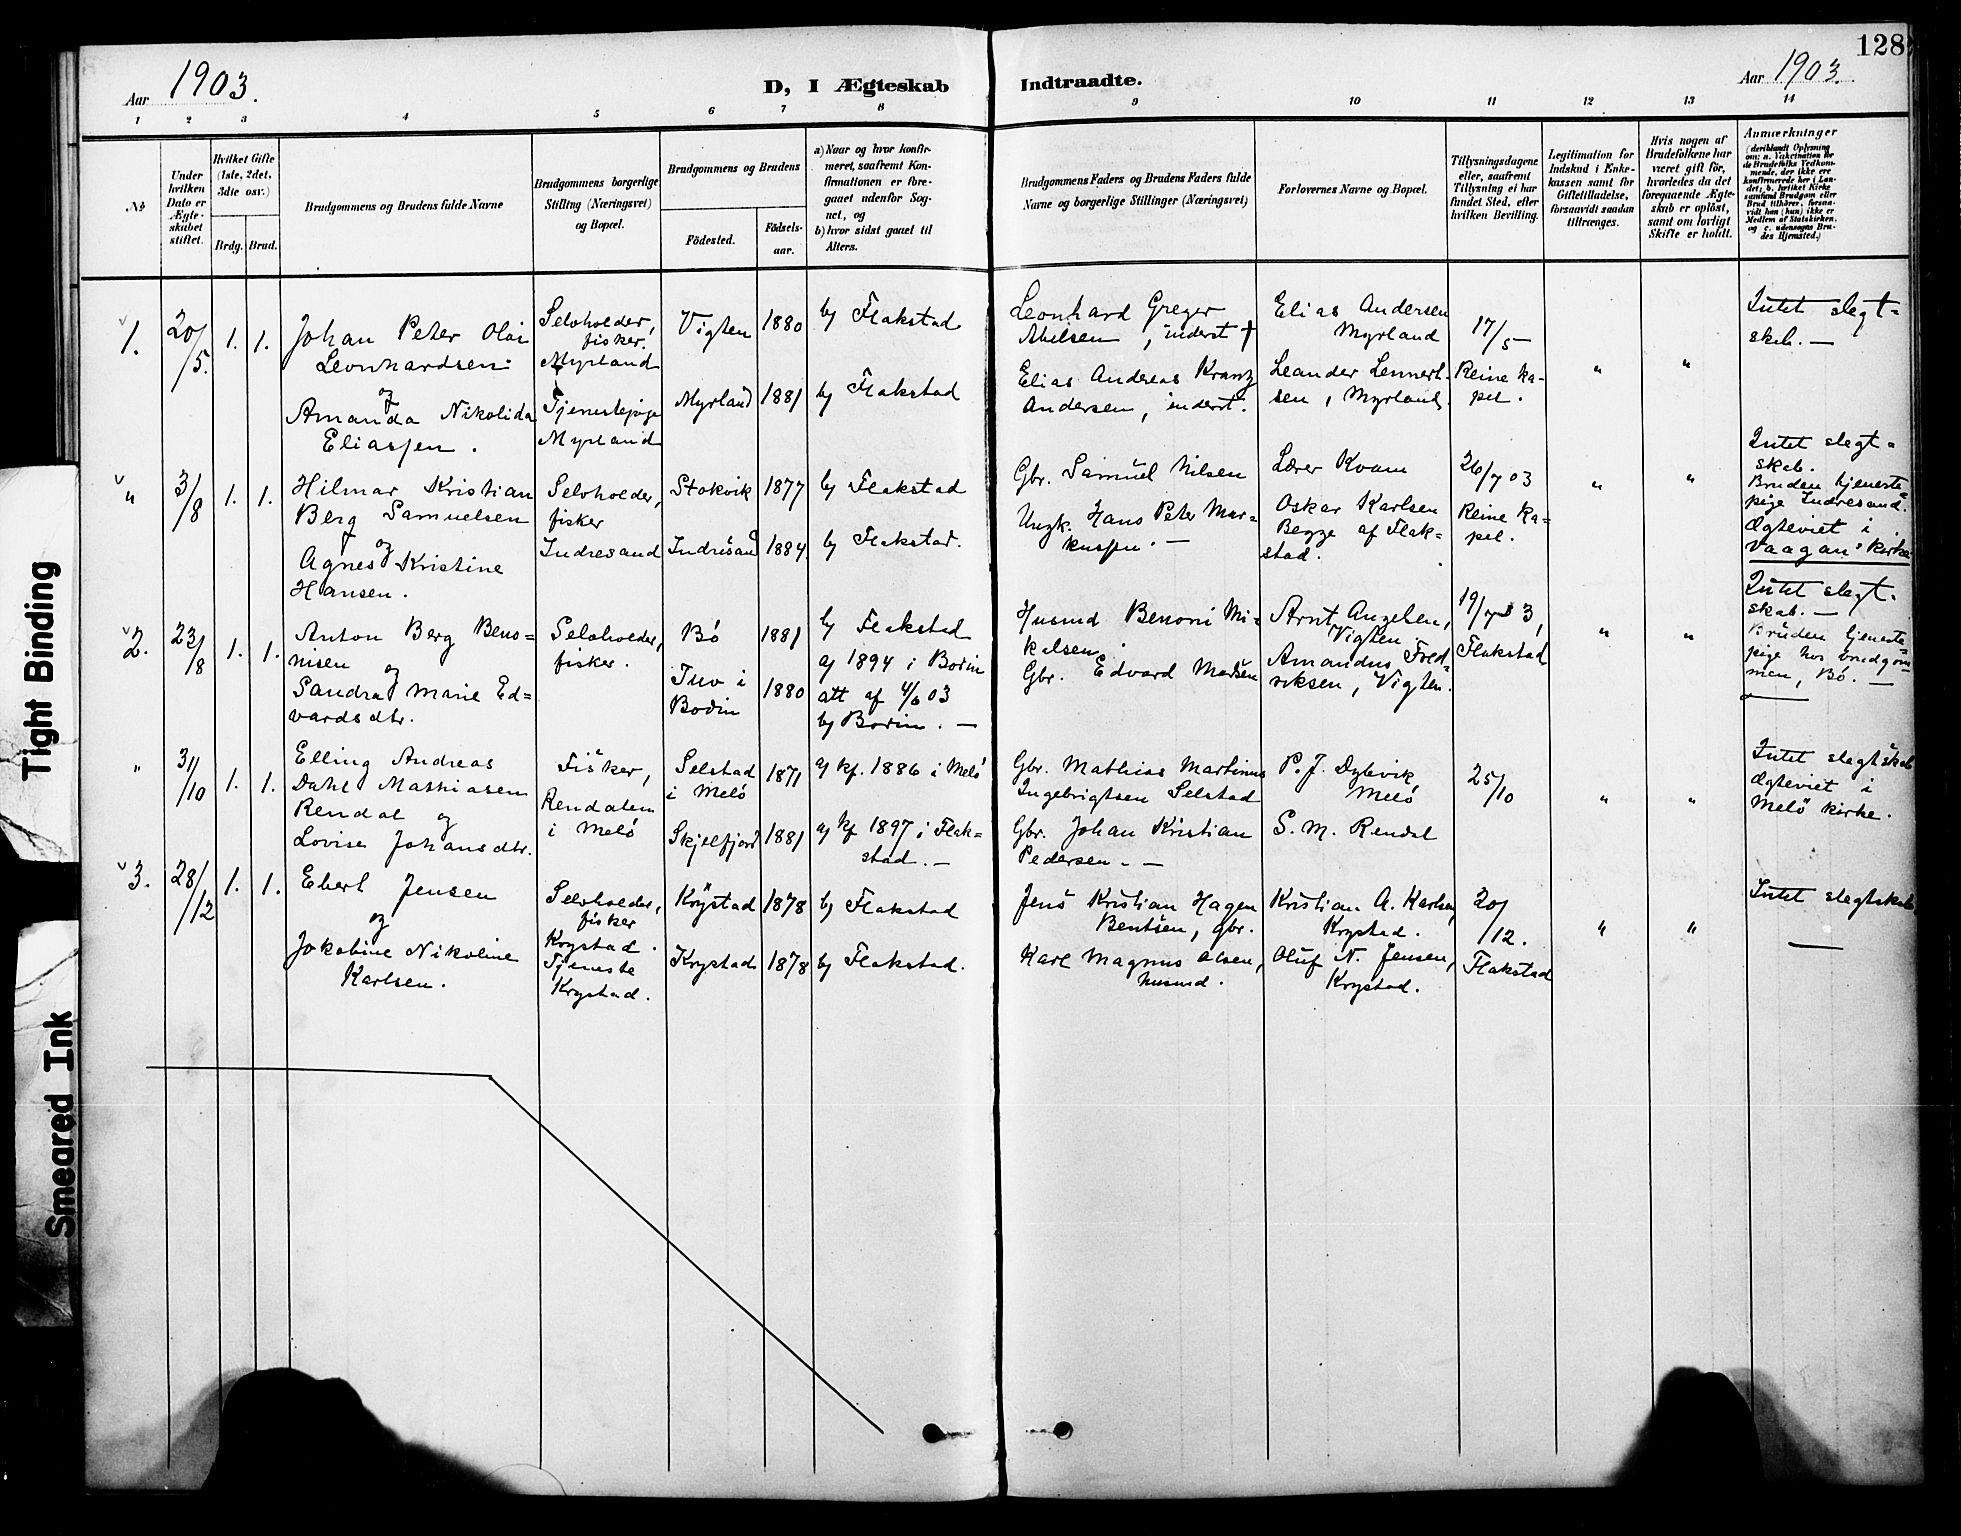 128
Aar 1903.
D, I Ægteskab Indtraadte.
Aar 1903.
1 2 3 4 5 6 7 8 9 10 11 12 13 14
№
Under
hvilken
Dato er
Ægte-
skabet
stiftet.
Hvilket Gifte
(1ste, 2det,
3die osv.)
Brdg. Brud.
Brudgommens og Brudens fulde Navne
Brudgommens borgerlige
Stilling (Næringsvei)
og Bopæl.
Brudgommens og Brudens
Födested.
Födsels-
aar.
a) Naar og hvor konfir-
meret, saafremt Kon-
firmationen er fore-
gaaet udenfor Sog-
net, og
b) hvor sidst gaaet til
Alters.
Brudgommens Faders og Brudens Faders fulde
Navne og borgerlige Stillinger (Næringsvei)
Forlovernes Navne og Bopæl.
Tillysningsdagene
eller, saafremt
Tillysning ei har
fundet Sted, efter
hvilken Bevilling.
Legitimation for
Indskud i Enke-
kassen samt for
Giftetilladelse,
forsaavidt saadan
tiltrænges.
Hvis nogen af
Brudefolkene har
været gift för,
hvorledes da det
foregaaende Ægte-
skab er oplöst,
samt om lovligt
Skifte er holdt.
Anmærkninger
(deriblandt Oplysning
om: a. Vakcination for
de Brudefolks Vedkom-
mende, der ikke ere
konfirmerede her i Lan-
det; b. hvilket Kirke
samfund Brudgom eller
Brud tilhörer, forsaa-
vidt han (hun) ikke er
Medlem af Statskirken,
og c. udensogns Bru-
des Hjemsted.)
1.
20/5.
1. 1.
Johan Peter Olai
Leonhardsen
og
Amanda Nikolida
Eliassen.
Selvholder,
fisker.
Myrland
Tjenestepige
Myrland
Vigten 1880
Myrland 1881
b) Flakstad
b) Flakstad
Leonhard Greger
Abelsen, inderst †
Elias Andreas Kranz
Andersen, inderst.
Elias Andersen
Myrland
Leander Lennert-
sen, Myrland.
17/5
Reine ka-
pel.
" "
Intet slegt-
skab. —
"
3/8
1. 1.
Hilmar Kristian
Berg Samuelsen
og
Agnes Kristine
Hansen.
Selvholder,
fisker
Indresand
Stokvik 1877
Indresand 1884
b) Flakstad
b) Flakstad.
Gbr. Samuel Nilsen
Ungk. Hans Peter Mar-
kussen. —
Lærer Kvam
Oskar Karlsen
Begge af Flak-
stad.
26/7 03
Reine ka-
pel.
" "
Intet slegt-
skab.
Bruden tjeneste
pige Indresand.
Ægteviet i
Vaagan kirke
2.
23/8
1. 1.
Anton Berg Beno-
nisen
og
Sandra Marie Ed-
vardsdtr.
Selvholder,
fisker.
Bö 1881
Tuv i
Bodin 1880
b) Flakstad
a) 1894 i Bodin
att af 4/6 03
b) Bodin. —
Husmd Benoni Mi-
kelsen.
Gbr. Edvard Madsen
Arnt Angelsen,
Vigten
Amandus Fred-
riksen, Vigten.
19/7 03,
Flakstad
" "
Intet slegt-
skab. —
Bruden tjeneste
pige hos brudgom-
men, Bö. —
"
31/10
1. 1.
Elling Andreas
Dahl Mathiasen
Rendal og
Lovise Johansdtr.
Fisker,
Rendalen
i Melö
Selstad
i Melö 1871
Skjelfjord 1881
a) kf. 1886 i Melö
a) kf 1897 i Flak-
stad. —
Gbr. Mathias Martinus
Ingebrigtsen Selstad
Gbr. Johan Kristian
Pedersen. —
P. J. Dybvik
Melö
S. M. Rendal
25/10
" "
Intet slegtskab
Ægteviet i
Melö kirke.
3.
28/12
1. 1.
Ebert Jensen
og
Jokobine Nikoline
Karlsen.
Selvholder,
fisker
Krystad.
Tjeneste
Krystad.
Krystad 1878
Krystad 1878
b) Flakstad
b) Flakstad.
Jens Kristian Hagen
Bentsen, gbr.
Karl Magnus Olsen,
husmd.
Kristian A. Karlsen,
Krystad.
Oluf N. Jensen,
Krystad.
20/12.
Flakstad
" "
Intet slegtskab
—
Tight Binding
Smeared Ink